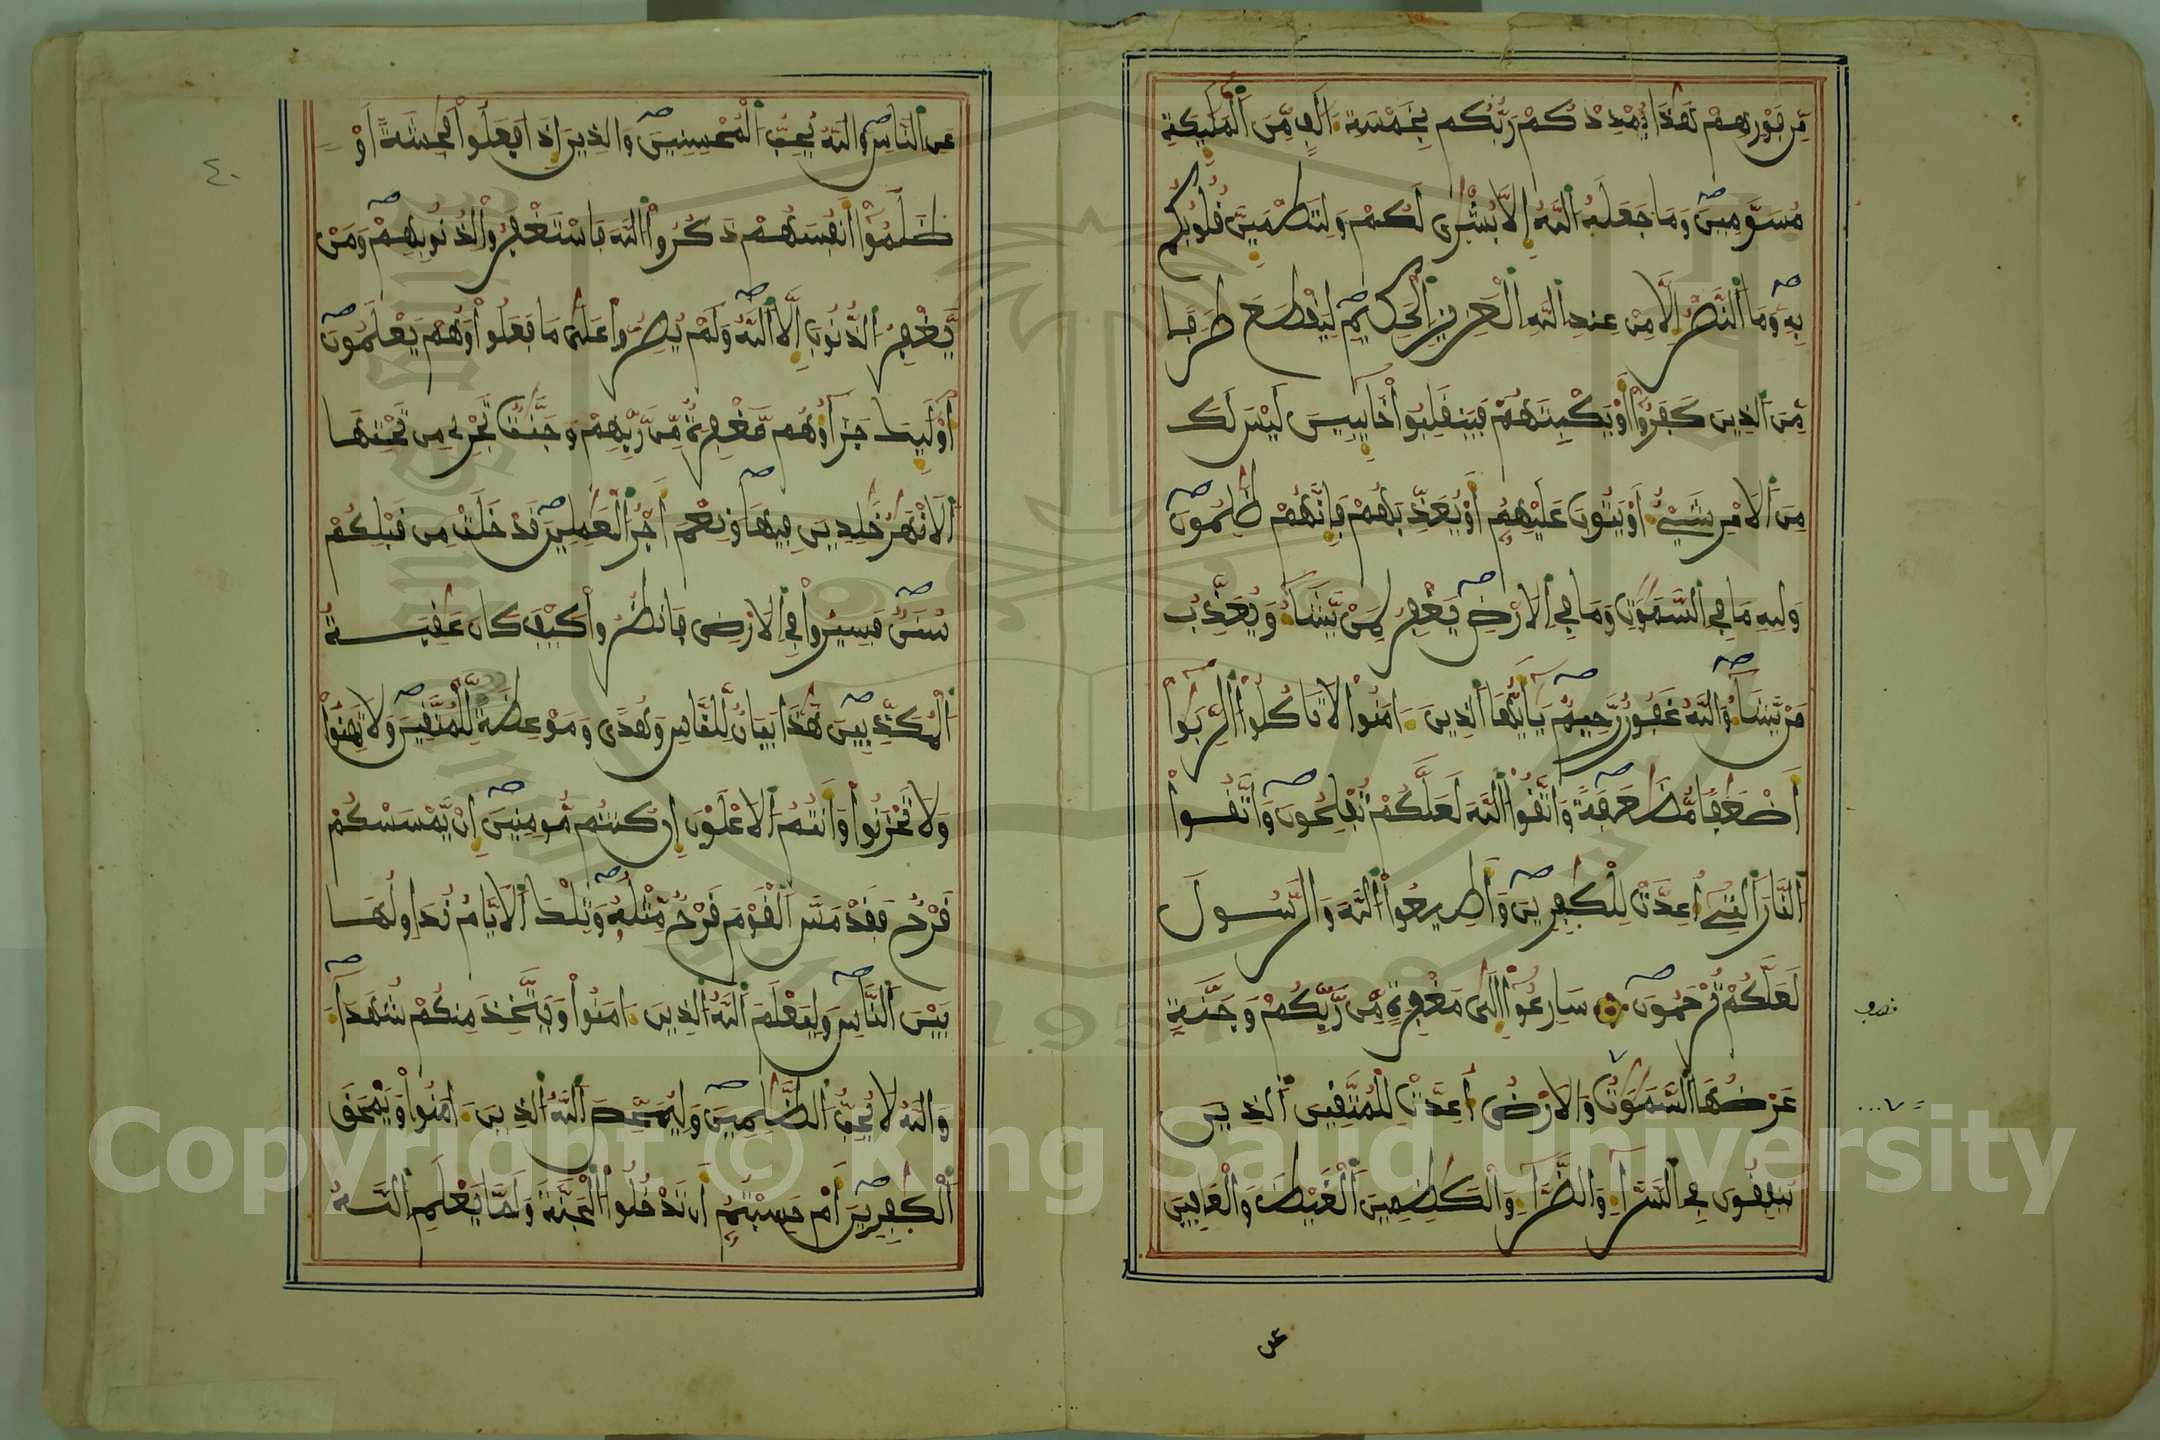 مِّن فَوْرِهِمْ هَٰذَا يُمْدِدْكُمْ رَبُّكُم بِخَمْسَةِ ءَالَٰفٍ مِّنَ ٱلْمَلَٰٓئِكَةِ
مُسَوَّمِينَ وَمَا جَعَلَهُ ٱللَّهُ إِلَّا بُشْر۪يٰ لَكُمْ وَلِتَطْمَئِنَّ قُلُوبُكُم
بِهِۦ وَمَا ٱلنَّصْرُ إِلَّا مِنْ عِندِ ٱللَّهِ ٱلْعَزِيزِ ٱلْحَكِيمِ لِيَقْطَعَ طَرَفا
مِّنَ ٱلذِينَ كَفَرُوٓا۟ أَوْ يَكْبِتَهُمْ فَيَنقَلِبُوا۟ خَآئِبِينَ لَيْسَ لَكَ
مِنَ ٱلَامْرِ شَيْءٌ اَوْ يَتُوبَ عَلَيْهِمُۥٓ أَوْ يُعَذِّبَهُمْ فَإِنَّهُمْ ظَٰلِمُونَ
وَلِلهِ مَا فِي ٱلسَّمَٰوَٰتِ وَمَا فِي ٱلَارْضِ يَغْفِرُ لِمَنْ يَّشَآءُ وَيُعَذِّبُ
مَنْ يَّشَآءُ وَٱللَّهُ غَفُورٌ رَّحِيمٌ يَٰٓأَيُّهَا ٱلذِينَ ءَامَنُوا۟ لَا تَاكُلُوا۟ ٱلرِّبَوٰٓا۟
أَضْعَٰفا مُّضَٰعَفَةً وَٱتَّقُوا۟ ٱللَّهَ لَعَلَّكُمْ تُفْلِحُونَ وَٱتَّقُوا۟
ٱلنَّارَ ٱلتِےٓ أُعِدَّتْ لِلْكٰ۪فِرِينَ وَأَطِيعُوا۟ ٱللَّهَ وَٱلرَّسُولَ
لَعَلَّكُمْ تُرْحَمُونَ سَارِعُوٓا۟ إِلَىٰ مَغْفِرَةٍ مِّن رَّبِّكُمْ وَجَنَّةٍ
عَرْضُهَا ٱلسَّمَٰوَٰتُ وَٱلَارْضُ أُعِدَّتْ لِلْمُتَّقِينَ ٱلذِينَ
يُنفِقُونَ فِي ٱلسَّرَّآءِ وَٱلضَّرَّآءِ وَٱلْكَٰظِمِينَ ٱلْغَيْظَ وَٱلْعَافِينَ
عَنِ ٱلنَّاسِ وَٱللَّهُ يُحِبُّ ٱلْمُحْسِنِينَ وَٱلذِينَ إِذَا فَعَلُوا۟ فَٰحِشَةً اَوْ
ظَلَمُوٓا۟ أَنفُسَهُمْ ذَكَرُوا۟ ٱللَّهَ فَٱسْتَغْفَرُوا۟ لِذُنُوبِهِمْ وَمَنْ
يَّغْفِرُ ٱلذُّنُوبَ إِلَّا ٱللَّهُ وَلَمْ يُصِرُّوا۟ عَلَىٰ مَا فَعَلُوا۟ وَهُمْ يَعْلَمُونَ
أُوْلَٰٓئِكَ جَزَآؤُهُم مَّغْفِرَةٌ مِّن رَّبِّهِمْ وَجَنَّٰتٌ تَجْرِے مِن تَحْتِهَا
ٱلَانْهَٰرُ خَٰلِدِينَ فِيهَا وَنِعْمَ أَجْرُ ٱلْعَٰمِلِينَ قَدْ خَلَتْ مِن قَبْلِكُمْ
سُنَنٌ فَسِيرُوا۟ فِي ٱلَارْضِ فَٱنظُرُوا۟ كَيْفَ كَانَ عَٰقِبَةُ
ٱلْمُكَذِّبِينَ هَٰذَا بَيَانٌ لِّلنَّاسِ وَهُدًى وَمَوْعِظَةٌ لِّلْمُتَّقِينَ وَلَا تَهِنُوا۟
وَلَا تَحْزَنُوا۟ وَأَنتُمُ ٱلَاعْلَوْنَ إِن كُنتُم مُّومِنِينَ إِنْ يَّمْسَسْكُمْ
قَرْحٌ فَقَدْ مَسَّ ٱلْقَوْمَ قَرْحٌ مِّثْلُهُۥ وَتِلْكَ ٱلَايَّامُ نُدَاوِلُهَا
بَيْنَ ٱلنَّاسِ وَلِيَعْلَمَ ٱللَّهُ ٱلذِينَ ءَامَنُوا۟ وَيَتَّخِذَ مِنكُمْ شُهَدَآءَ
وَٱللَّهُ لَا يُحِبُّ ٱلظَّٰلِمِينَ وَلِيُمَحِّصَ ٱللَّهُ ٱلذِينَ ءَامَنُوا۟ وَيَمْحَقَ
ٱلْكٰ۪فِرِينَ أَمْ حَسِبْتُمُۥٓ أَن تَدْخُلُوا۟ ٱلْجَنَّةَ وَلَمَّا يَعْلَمِ ٱللَّهُ
٤٠
Copyright © King Saud University
1957